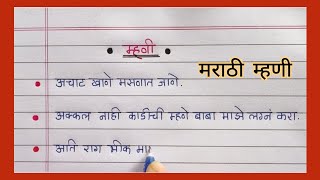 म्हणी
मराठी म्हणी
अचाट खाणे मसणात जाणे.
अक्कल नाही काडीची म्हणे बाबा माझे लग्न करा.
अति राग भीक मा